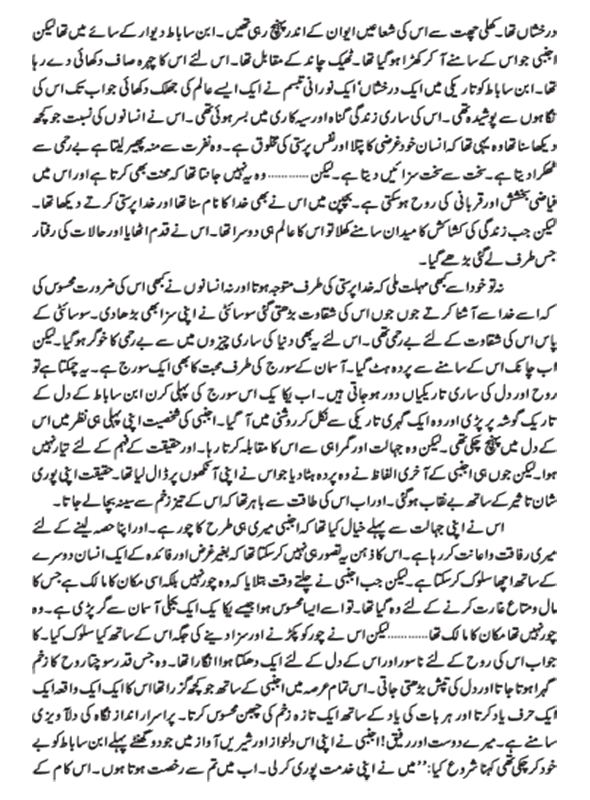 درخشاں تھا۔ کھلی چھت سے اس کی شعاعیں ایوان کے اندر پہنچ رہی تھیں۔ ابن ساباط دیوار کے سائے میں تھا لیکن
اجنبی جو اس کے سامنے آ کر کھڑا ہو گیا تھا۔ ٹھیک چاند کے مقابل تھا۔ اس لئے اس کا چہرہ صاف دکھائی دے رہا
تھا۔ ابن ساباط کو تاریکی میں ایک درخشاں‘ ایک نورانی تبسم نے ایک ایسے عالم کی جھلک دکھائی جو اب تک اس کی
نگاہوں سے پوشیدہ تھی۔ اس کی ساری زندگی گناہ اور سیہ کاری میں بسر ہوئی تھی۔ اس نے انسانوں کی نسبت جو کچھ
دیکھا سنا تھا وہ یہی تھا کہ انسان خود غرضی کا پتلا اور نفس پرستی کی مخلوق ہے۔ وہ نفرت سے منہ پھیر لیتا ہے بے رحمی سے
ٹھکرا دیتا ہے۔ سخت سے سخت سزائیں دیتا ہے۔ لیکن ............ وہ یہ نہیں جانتا تھا کہ محنت بھی کرتا ہے اور اس میں
فیاضی بخشش اور قربانی کی روح ہو سکتی ہے۔ بچپن میں اس نے بھی خدا کا نام سنا تھا اور خدا پرستی کرتے دیکھا تھا۔
لیکن جب زندگی کی کشاکش کا میدان سامنے کھلا تو اس کا عالم ہی دوسرا تھا۔ اس نے قدم اٹھایا اور حالات کی رفتار
جس طرف لے گئی بڑھے گیا۔
نہ تو خود اسے کبھی مہلت ملی کہ خدا پرستی کی طرف متوجہ ہوتا اور نہ انسانوں نے کبھی اس کی ضرورت محسوس کی
کہ اسے خدا سے آشنا کرتے جوں جوں اس کی شقاوت بڑھتی گئی سوسائٹی نے اپنی سزا بھی بڑھا دی۔ سوسائٹی کے
پاس اس کی شقاوت کے لئے بے رحمی تھی۔ اس لئے یہ بھی دنیا کی ساری چیزوں میں سے بے رحمی کا خوگر ہو گیا۔ لیکن
اب چانک اس کے سامنے سے پردہ ہٹ گیا۔ آسمان کے سورج کی طرف محبت کا بھی ایک سورج ہے۔ یہ چمکتا ہے تو
روح اور دل کی ساری تاریکیاں دور ہو جاتی ہیں۔ اب یکا یک اس سورج کی پہلی کرن ابن ساباط کے دل کے
تاریک گوشہ پر پڑی اور وہ ایک گہری تاریکی سے نکل کر روشنی میں آ گیا۔ اجنبی کی شخصیت اپنی پہلی ہی نظر میں اس
کے دل میں پہنچ چکی تھی۔ لیکن وہ جہالت اور گمراہی سے اس کا مقابلہ کرتا رہا۔ اور حقیقت کے فہم کے لئے تیار نہیں
ہوا۔ لیکن جوں ہی اجنبی کے آخری الفاظ نے وہ پردہ ہٹا دیا جو اس نے اپنی آنکھوں پر ڈال لیا تھا۔ حقیقت اپنی پوری
شان تاثیر کے ساتھ بے نقاب ہو گئی۔ اور اب اس کی طاقت سے باہر تھا کہ اس کے تیز زخم سے سینہ بچا لے جاتا۔
اس نے اپنی جہالت سے پہلے خیال کیا تھا کہ اجنبی میری ہی طرح کا چور ہے۔ اور اپنا حصہ لینے کے لئے
میری رفاقت و اعانت کر رہا ہے۔ اس کا ذہن یہ تصور ہی نہیں کر سکتا تھا کہ بغیر غرض اور فائدہ کے ایک انسان دوسرے
کے ساتھ اچھا سلوک کر سکتا ہے۔ لیکن جب اجنبی نے چلتے وقت بتلایا کہ وہ چور نہیں بلکہ اسی مکان کا مالک ہے جس کا
مال و متاع غارت کرنے کے لئے وہ گیا تھا۔ تو اسے ایسا محسوس ہوا جیسے یکا یک ایک بجلی آسمان سے گر پڑی ہے۔ وہ
چور نہیں تھا مکان کا مالک تھا ............ لیکن اس نے چور کو پکڑنے اور سزا دینے کی جگہ اس کے ساتھ کیا سلوک کیا۔ کا
جواب اس کی روح کے لئے ناسور اور اس کے دل کے لئے ایک دھکتا ہوا انگارا تھا۔ وہ جس قدر سوچتا روح کا زخم
گہرا ہوتا جاتا اور دل کی تپش بڑھتی جاتی۔ اس تمام عرصہ میں اجنبی کے ساتھ جو کچھ گزرا تھا اس کا ایک ایک واقعہ ایک
ایک حرف یاد کرتا اور ہر بات کی یاد کے ساتھ ایک تازہ زخم کی چبھن محسوس کرتا۔ پر اسرار انداز نگاہ کی دلآویزی
سامنے ہے۔ میرے دوست اور رفیق! اجنبی نے اپنی اس دلنواز اور شیریں آواز میں جو دو گھنٹے پہلے ابن ساباط کو بے
خود کر چکی تھی کہنا شروع کیا: ’’میں نے اپنی خدمت پوری کر لی۔ اب میں تم سے رخصت ہوتا ہوں۔ اس کام کے